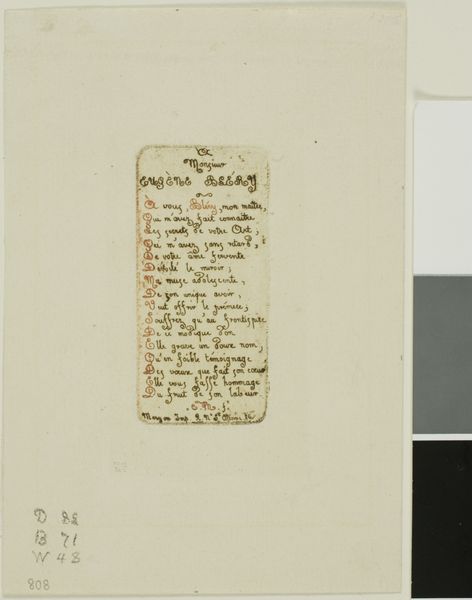 A
Monsieur
EUGÈNE BLÉRY
A vous, Bléry, mon maître,
Qui m'avez fait connaitre
Les secrets de votre Art;
Qui m'avez sans retard,
De votre âme fervente
Dévoilé le miroir;
Ma muse adolescente,
De son unique avoir,
Veut offrir le prémice;
Souffrez qu'au frontispice
De ce modique don
Elle grave un doux nom,
Qu'en foible témoignage
Des vœux que fait son cœur
Elle vous fasse hommage
Du fruit de son labeur
C. M.
Imp. R. Nve St
D 82
B 71
W 48
808